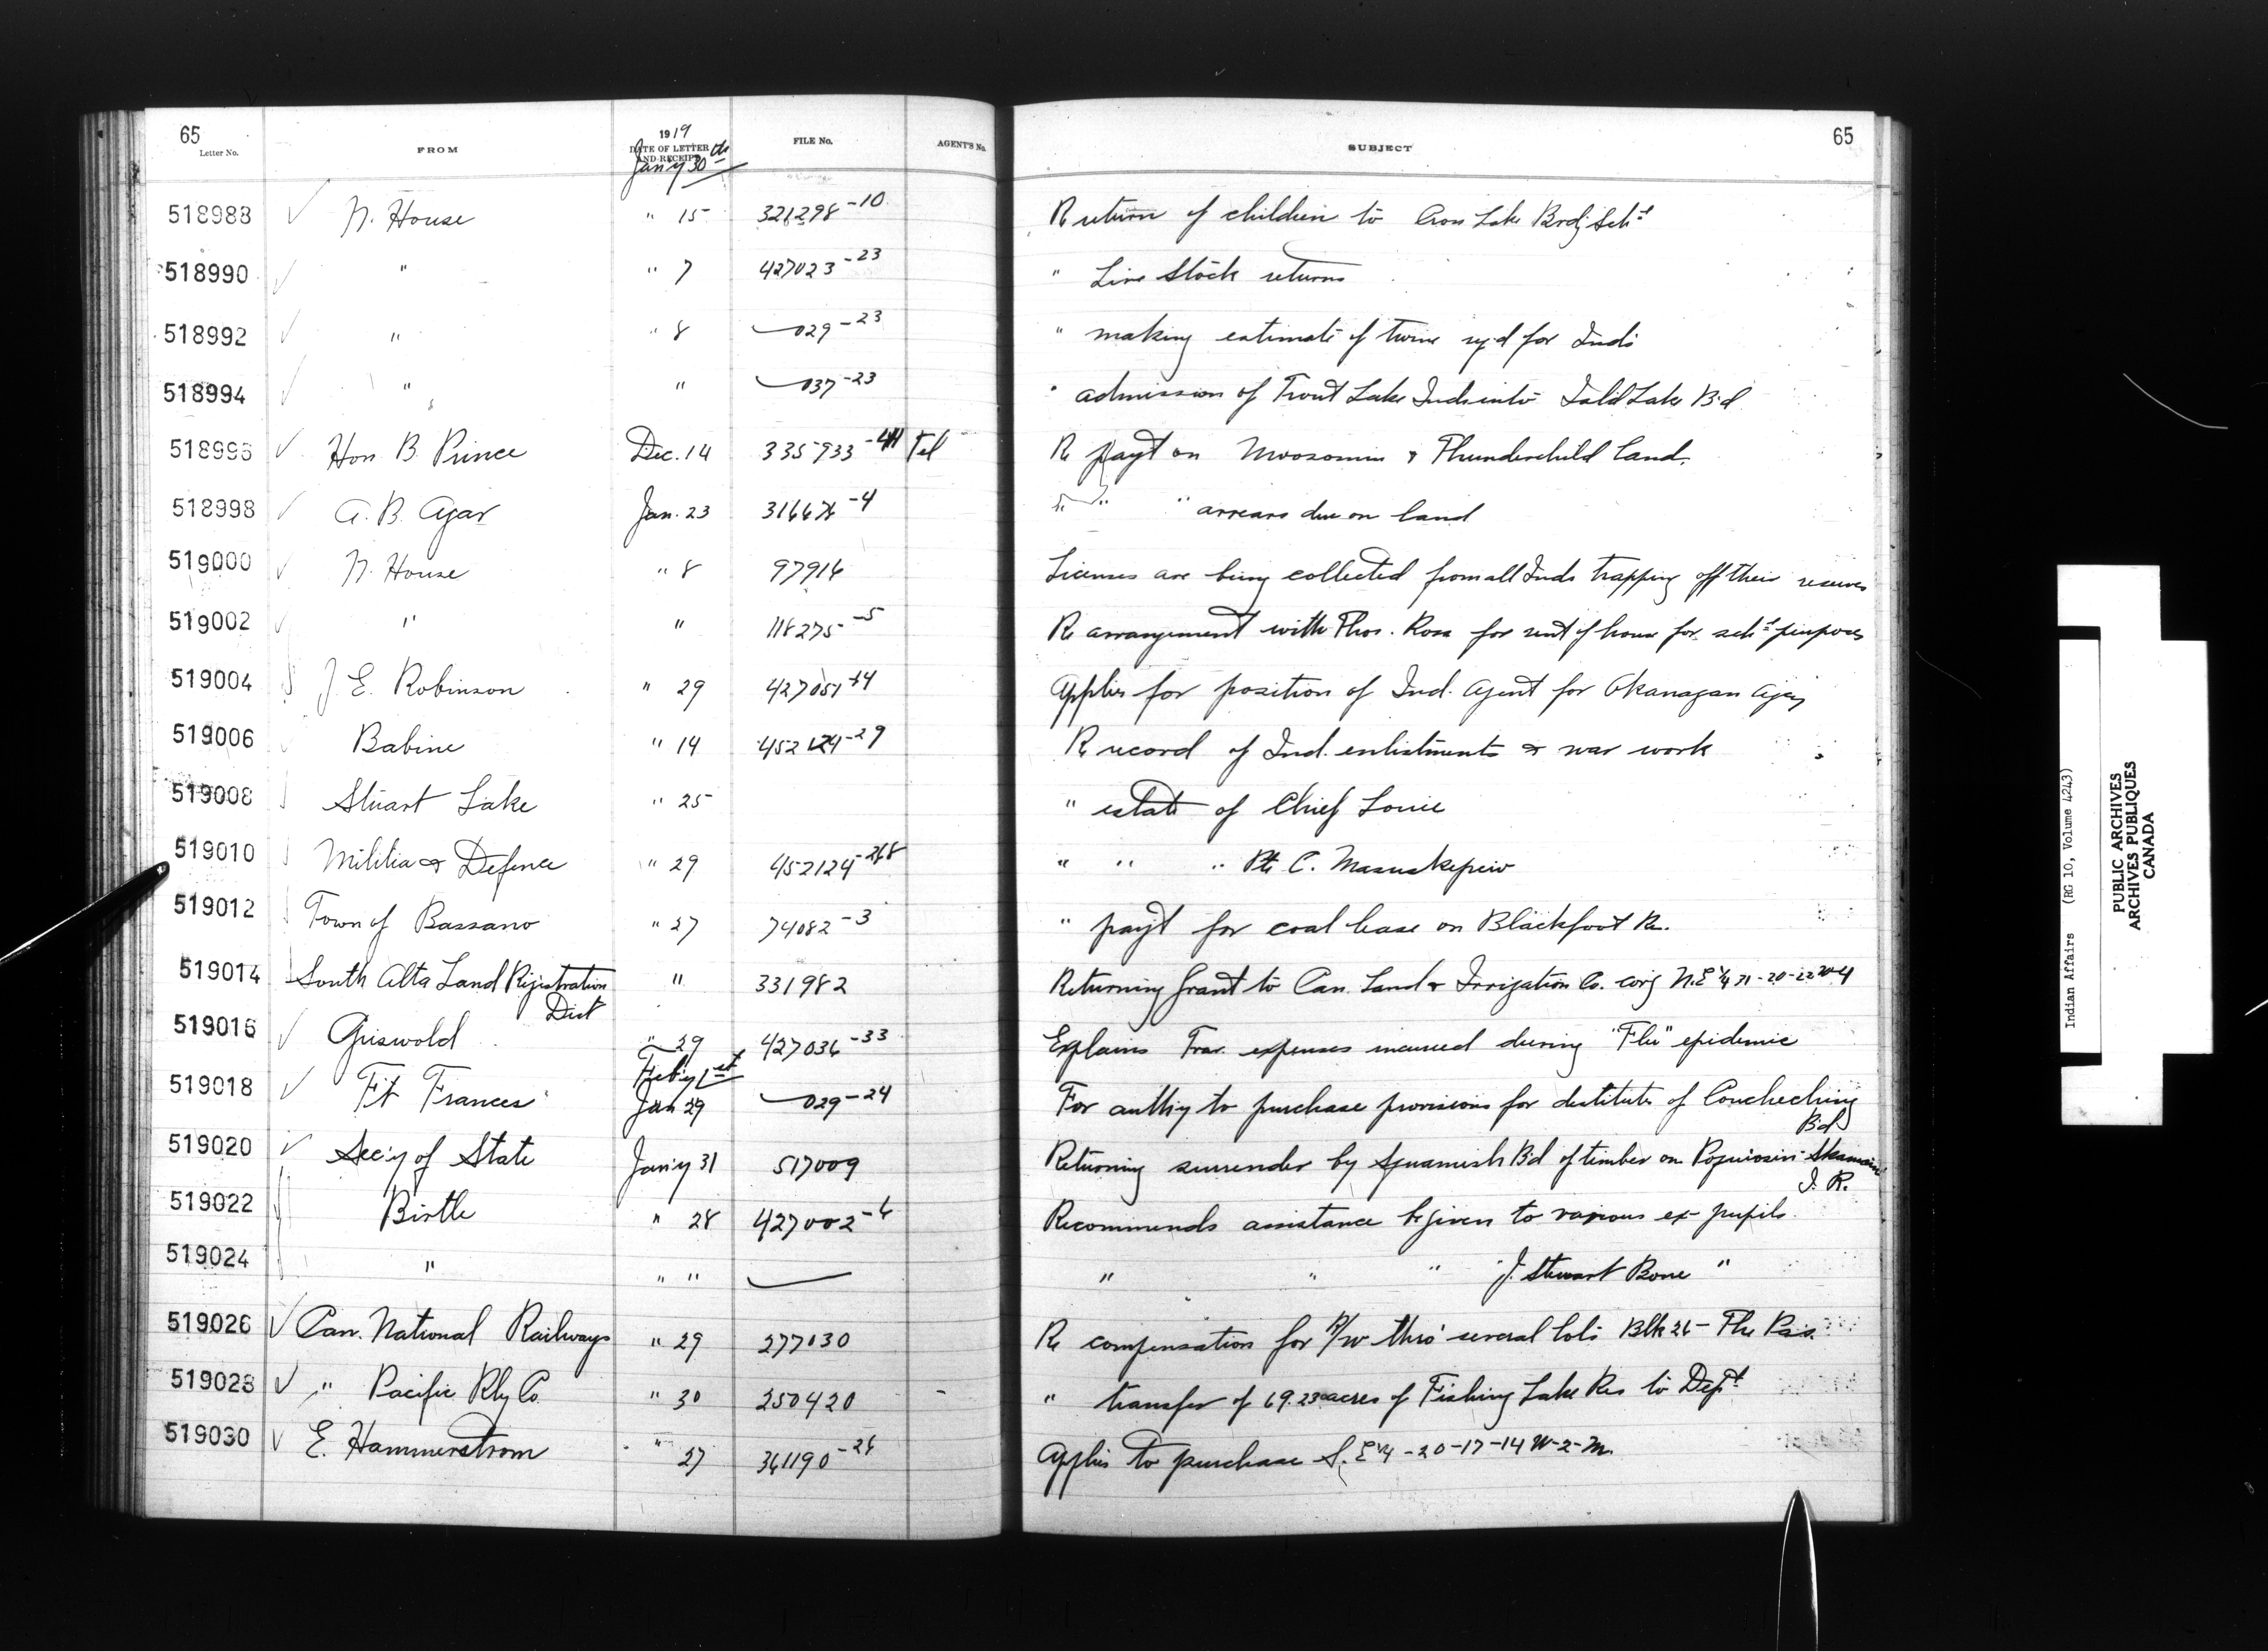 65
Letter No. FROM 1919 DATE OF LETTER AND RECEIPT FILE No. AGENT'S No. SUBJECT 65
Jan'y 30th
518988 N. House " 15 321298-10 Re return of children to Cross Lake Brdg Schl
518990 " " 7 427023-23 " Live Stock returns
518992 " " 8 029-23 " making estimate of twine rq'd for Inds
518994 " " 037-23 " admission of Trout Lake Inds into Lake Bd
518996 Hon B. Prince Dec. 14 335933-4 Tel Re payt on Moosomin & Thunderchild land.
518998 A. B. Agar Jan. 23 -4 " " " arrears due on land
519000 N. House " 8 97916 Licenses are being collected from all Inds trapping off their reserves
519002 " " 118275-5 Re arrangement with Thos. Ross for rent of house for schl purposes
519004 J. E. Robinson " 29 427051-14 Applies for position of Ind. Agent for Okanagan Agcy
519006 Babine " 14 452124-29 Re record of Ind. enlistments & war work
519008 Stuart Lake " 25 " estate of Chief Louie
519010 Militia & Defence " 29 452124-268 " " " Pte C. Masuskapew
519012 Town of Bassano " 27 74082-3 " payt for coal lease on Blackfoot Re.
519014 South Alta Land Registration " 331982 Returning Grant to Can. Land & Irrigation Co. covg N.E 1/4 31-20-22 W 4
Dist
519016 Griswold " 29 427036-33 Explains Trav. expenses incurred during "Flu" epidemic
Feb'y 1st
519018 Ft Frances Jan 29 029-24 For authy to purchase provisions for destitute of Couchiching
Bd
519020 Sec'y of State Jan'y 31 517009 Returning surrender by Squamish Bd of timber on Skamain
I. R.
519022 Birtle " 28 427002-6 Recommends assistance be given to various ex-pupils.
519024 " " " " " " J. Stewart Bone "
519026 Can. National Railways " 29 277030 Re compensation for R/W thro' several lots Blk 26 - The Pas.
519028 " Pacific Rly Co. " 30 250420 " transfer of 69.23 acres of Fishing Lake Res to Dept
519030 E. Hammerstrom " 27 361190-26 Applies to purchase S. E 1/4 - 20-17-14 W-2-M.
Indian Affairs (RG 10, Volume 4243)
PUBLIC ARCHIVES
ARCHIVES PUBLIQUES
CANADA